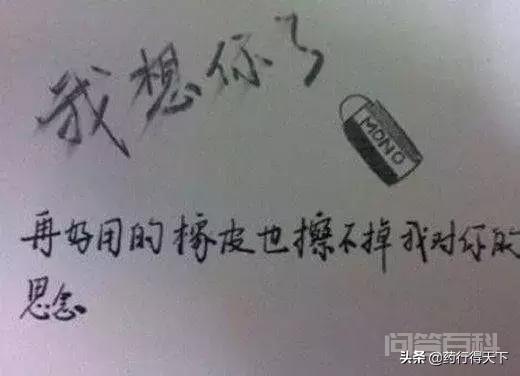 我想你了
MONO
再好用的橡皮也擦不掉我对你的
思念
问答百科
头条 @药行得天下